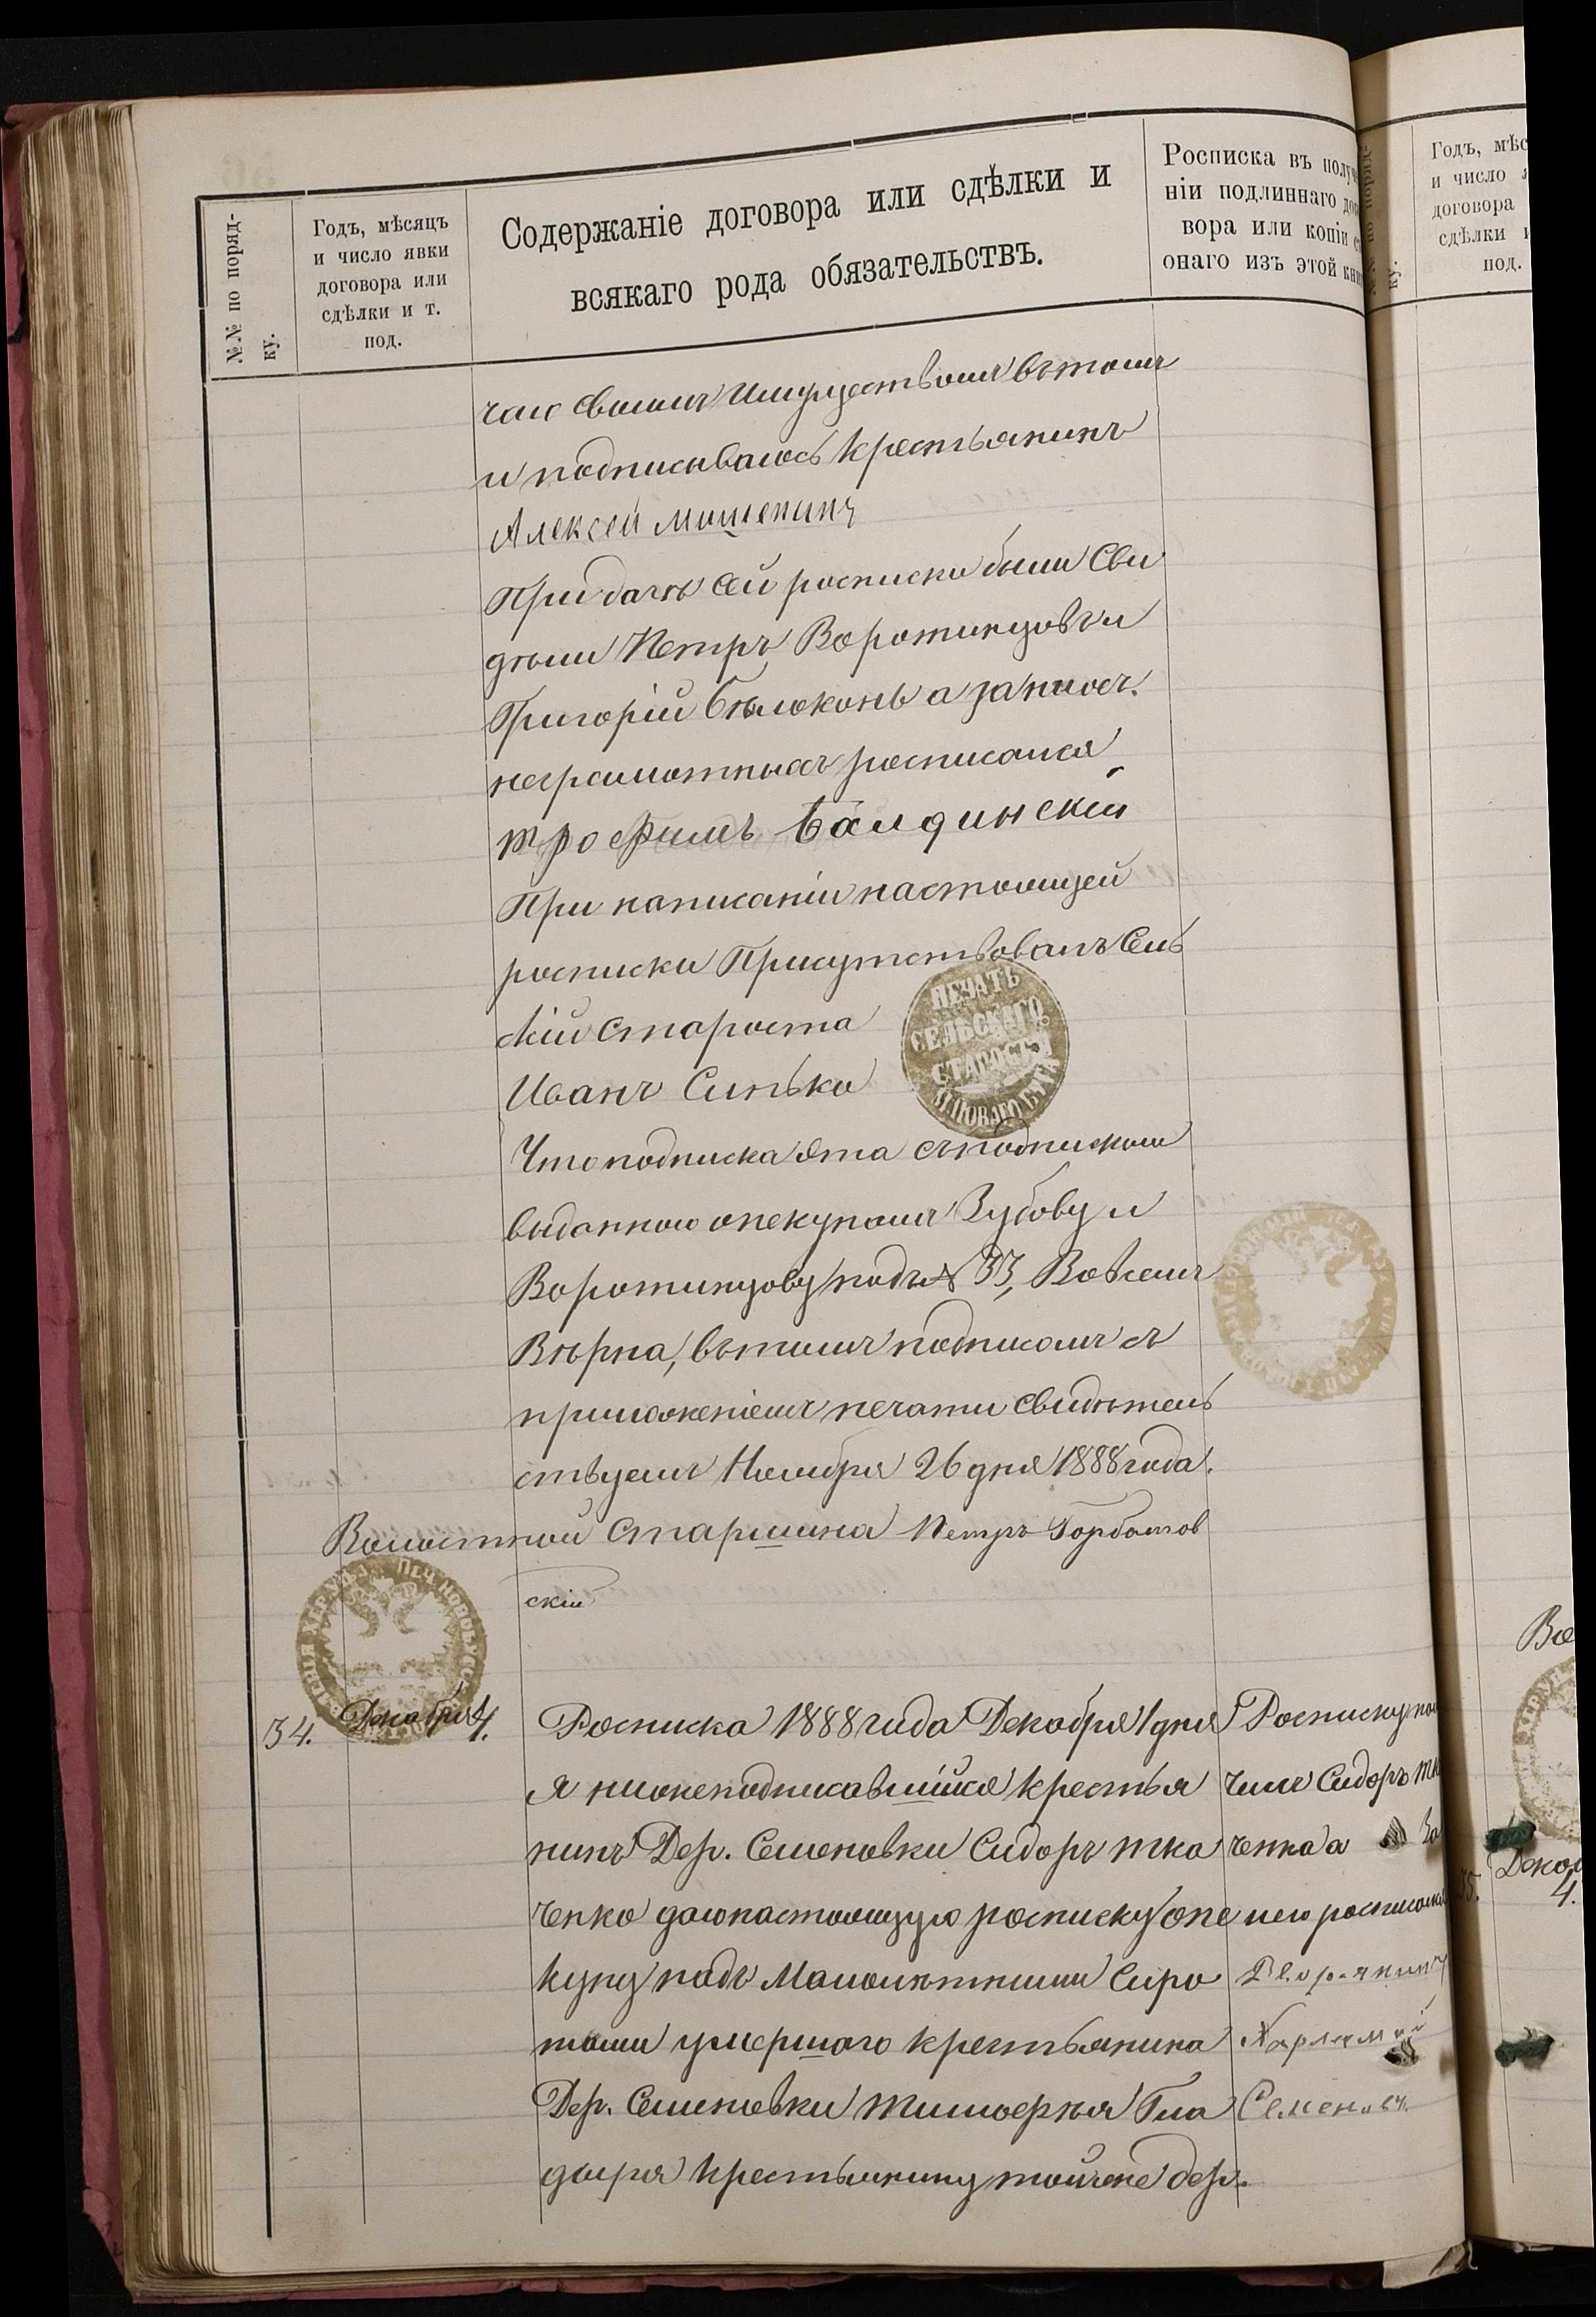 №№ по поряд-
ку.
Годъ, мѣсяцъ
и число явки
договора или
сдѣлки и т.
под.
Содержаніе договора или сдѣлки и
всякаго рода обязательствъ.
Росписка въ получе
ніи подлиннаго дого
вора или копіи съ
онаго изъ этой книги
чаю своимъ имуществомъ въ томъ
и подписываюсь крестьянинъ
Алексей
При дачѣ сей росписки были Сви
дѣтели Петръ Воротинцовъ и
Григорій Бѣлоконь а за нихъ
неграмотныхъ росписался
трофимъ Балдинскій
При написаніи настоящей
росписки Присутствовалъ Сель
скій Староста
Иванъ Синько
ПЕЧАТЬ
СЕЛЬСКАГО
СТАРОСТЫ
Что подписка эта съ подпискою
выданною опекунамъ Зубову и
Воротинцову подъ № 33, Во всемъ
Вѣрна, въ томъ подписомъ съ
приложеніемъ печати свидѣтель
ствуемъ Ноября 26 дня 1888 года.
Волостной Старшина Петръ Горбатов
скій
34.
Декабря 4.
Росписка 1888 года Декабря 1 дня
я нижеподписавшійся крестья
нинъ Дер. Семеновки Сидоръ тка
ченко даю настоящую росписку опе
куну надъ Малолѣтними Сиро
тами умершаго крестьянина
Дер. Семеновки тимофея Гла
дыря крестьянину тойже дер.
Росписку по
чилъ Сидоръ тка
ченко а за
него росписался
Дворянинъ
Харлампій
Семеновъ
Годъ, мѣс
и число я
договора
сдѣлки и
под.
35.
Дека
4.